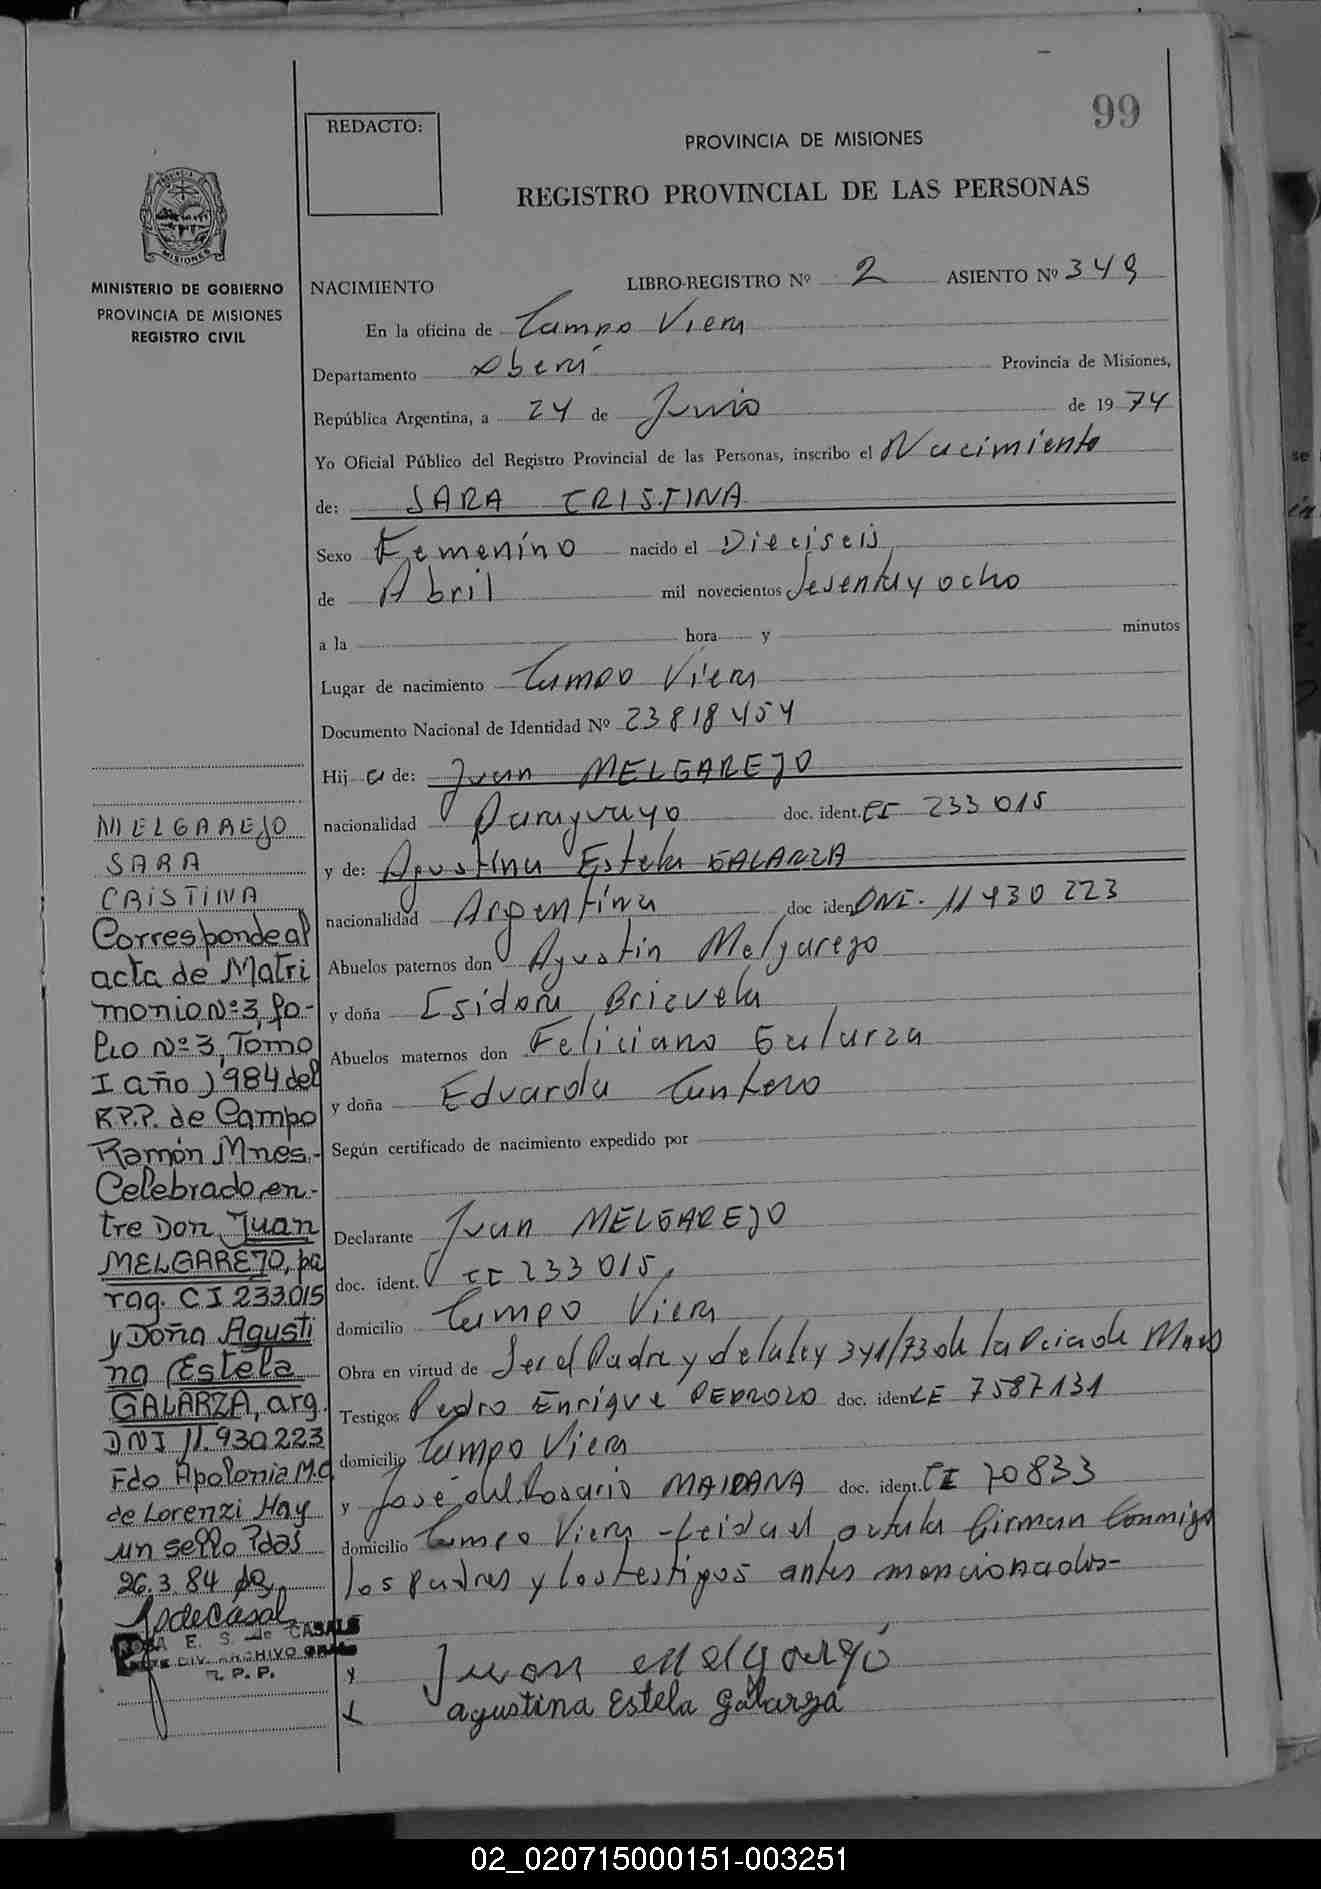 99
REDACTO:
PROVINCIA DE MISIONES
REGISTRO PROVINCIAL DE LAS PERSONAS
MISIONES
MINISTERIO DE GOBIERNO
PROVINCIA DE MISIONES
REGISTRO CIVIL
NACIMIENTO LIBRO-REGISTRO Nº 2 ASIENTO Nº 349
En la oficina de Campo Viera
Departamento Oberá Provincia de Misiones,
República Argentina, a 24 de Junio de 1974
Yo Oficial Público del Registro Provincial de las Personas, inscribo el Nacimiento
de: SARA CRISTINA
Sexo Femenino nacido el Dieciseis
de Abril mil novecientos Sesenta y ocho
a la hora y minutos
Lugar de nacimiento Campo Viera
Documento Nacional de Identidad Nº 23818454
Hij a de: Juan MELGAREJO
nacionalidad Paraguayo doc. ident. CI 233015
y de: Agustina Estela GALARZA
nacionalidad Argentina doc iden DNI. 11930223
Abuelos paternos don Agustin Melgarejo
y doña Isidora Brizuela
Abuelos maternos don Feliciano Galarza
y doña Eduarda Cantero
Según certificado de nacimiento expedido por
Declarante Juan MELGAREJO
doc. ident. CI 233015,
domicilio Campo Viera
Obra en virtud de Ser el Padre y de la ley 341/73 de la Pcia de Mnes
Testigos Pedro Enrique PEDROZO doc. iden LE 7587131
domicilio Campo Viera
y José del Rosario MAIDANA doc. ident. CI 70833
domicilio Campo Viera - Leida el acta la firman conmigo
los padres y los testigos antes mencionados-
Juan Melgarejo
agustina Estela Galarza
MELGAREJO
SARA
CRISTINA
Corresponde al
acta de Matri
monio Nº 3, fo-
lio Nº 3, Tomo
I año 1984 del
R.P.P. de Campo
Ramón Mnes.-
Celebrado en-
tre Don Juan
MELGAREJO, pa
rag. CI 233015
y Doña Agusti
na Estela
GALARZA, arg.
DNI 11.930223
Fdo Apolonia M.C
de Lorenzi Hay
un sello Pdas
26.3.84
ROSA E. S. de CASALS
DIV. ARCHIVO GRAL
R. P. P.
02_020715000151-003251